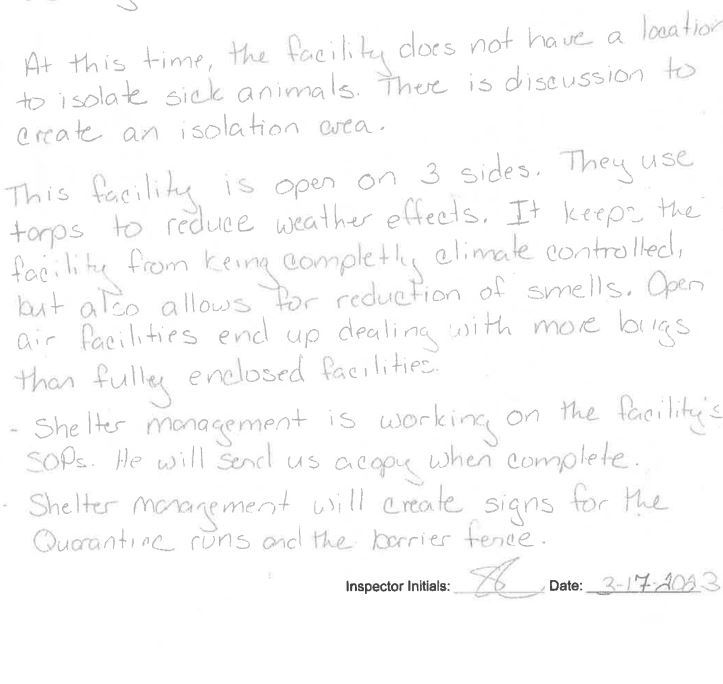 At this time, the facility does not have a location
to isolate sick animals. There is discussion to
create an isolation area.
This facility is open on 3 sides. They use
tarps to reduce weather effects. It keeps the
facility from being completly climate controlled,
but also allows for reduction of smells. Open
air facilities end up dealing with more bugs
than fulley enclosed facilities.
- Shelter management is working on the facility's
SOPs. He will send us a copy when complete.
- Shelter management will create signs for the
Quarantine runs and the barrier fence.
Inspector Initials: Date: 3-17-2023